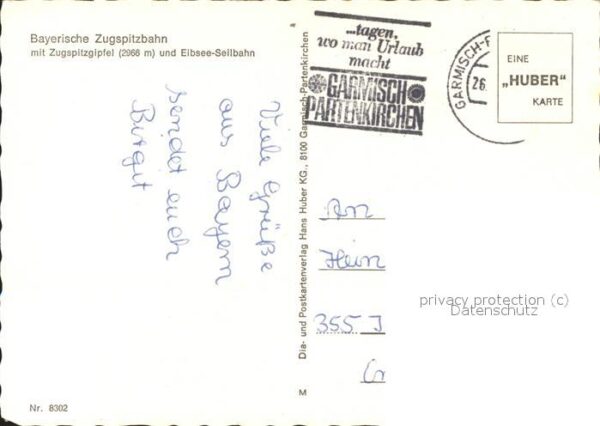 Bayerische Zugspitzbahn
mit Zugspitzgipfel (2966 m) und Eibsee-Seilbahn
Viele Grüße
aus Bayern
sendet euch
Birgit
Nr. 8302
Dia- und Postkartenverlag Hans Huber KG., 8100 Garmisch-Partenkirchen
M
...tagen,
wo man Urlaub
macht
GARMISCH
PARTENKIRCHEN
GARMISCH-P
26.
EINE
„HUBER"
KARTE
An
355
privacy protection (c)
Datenschutz